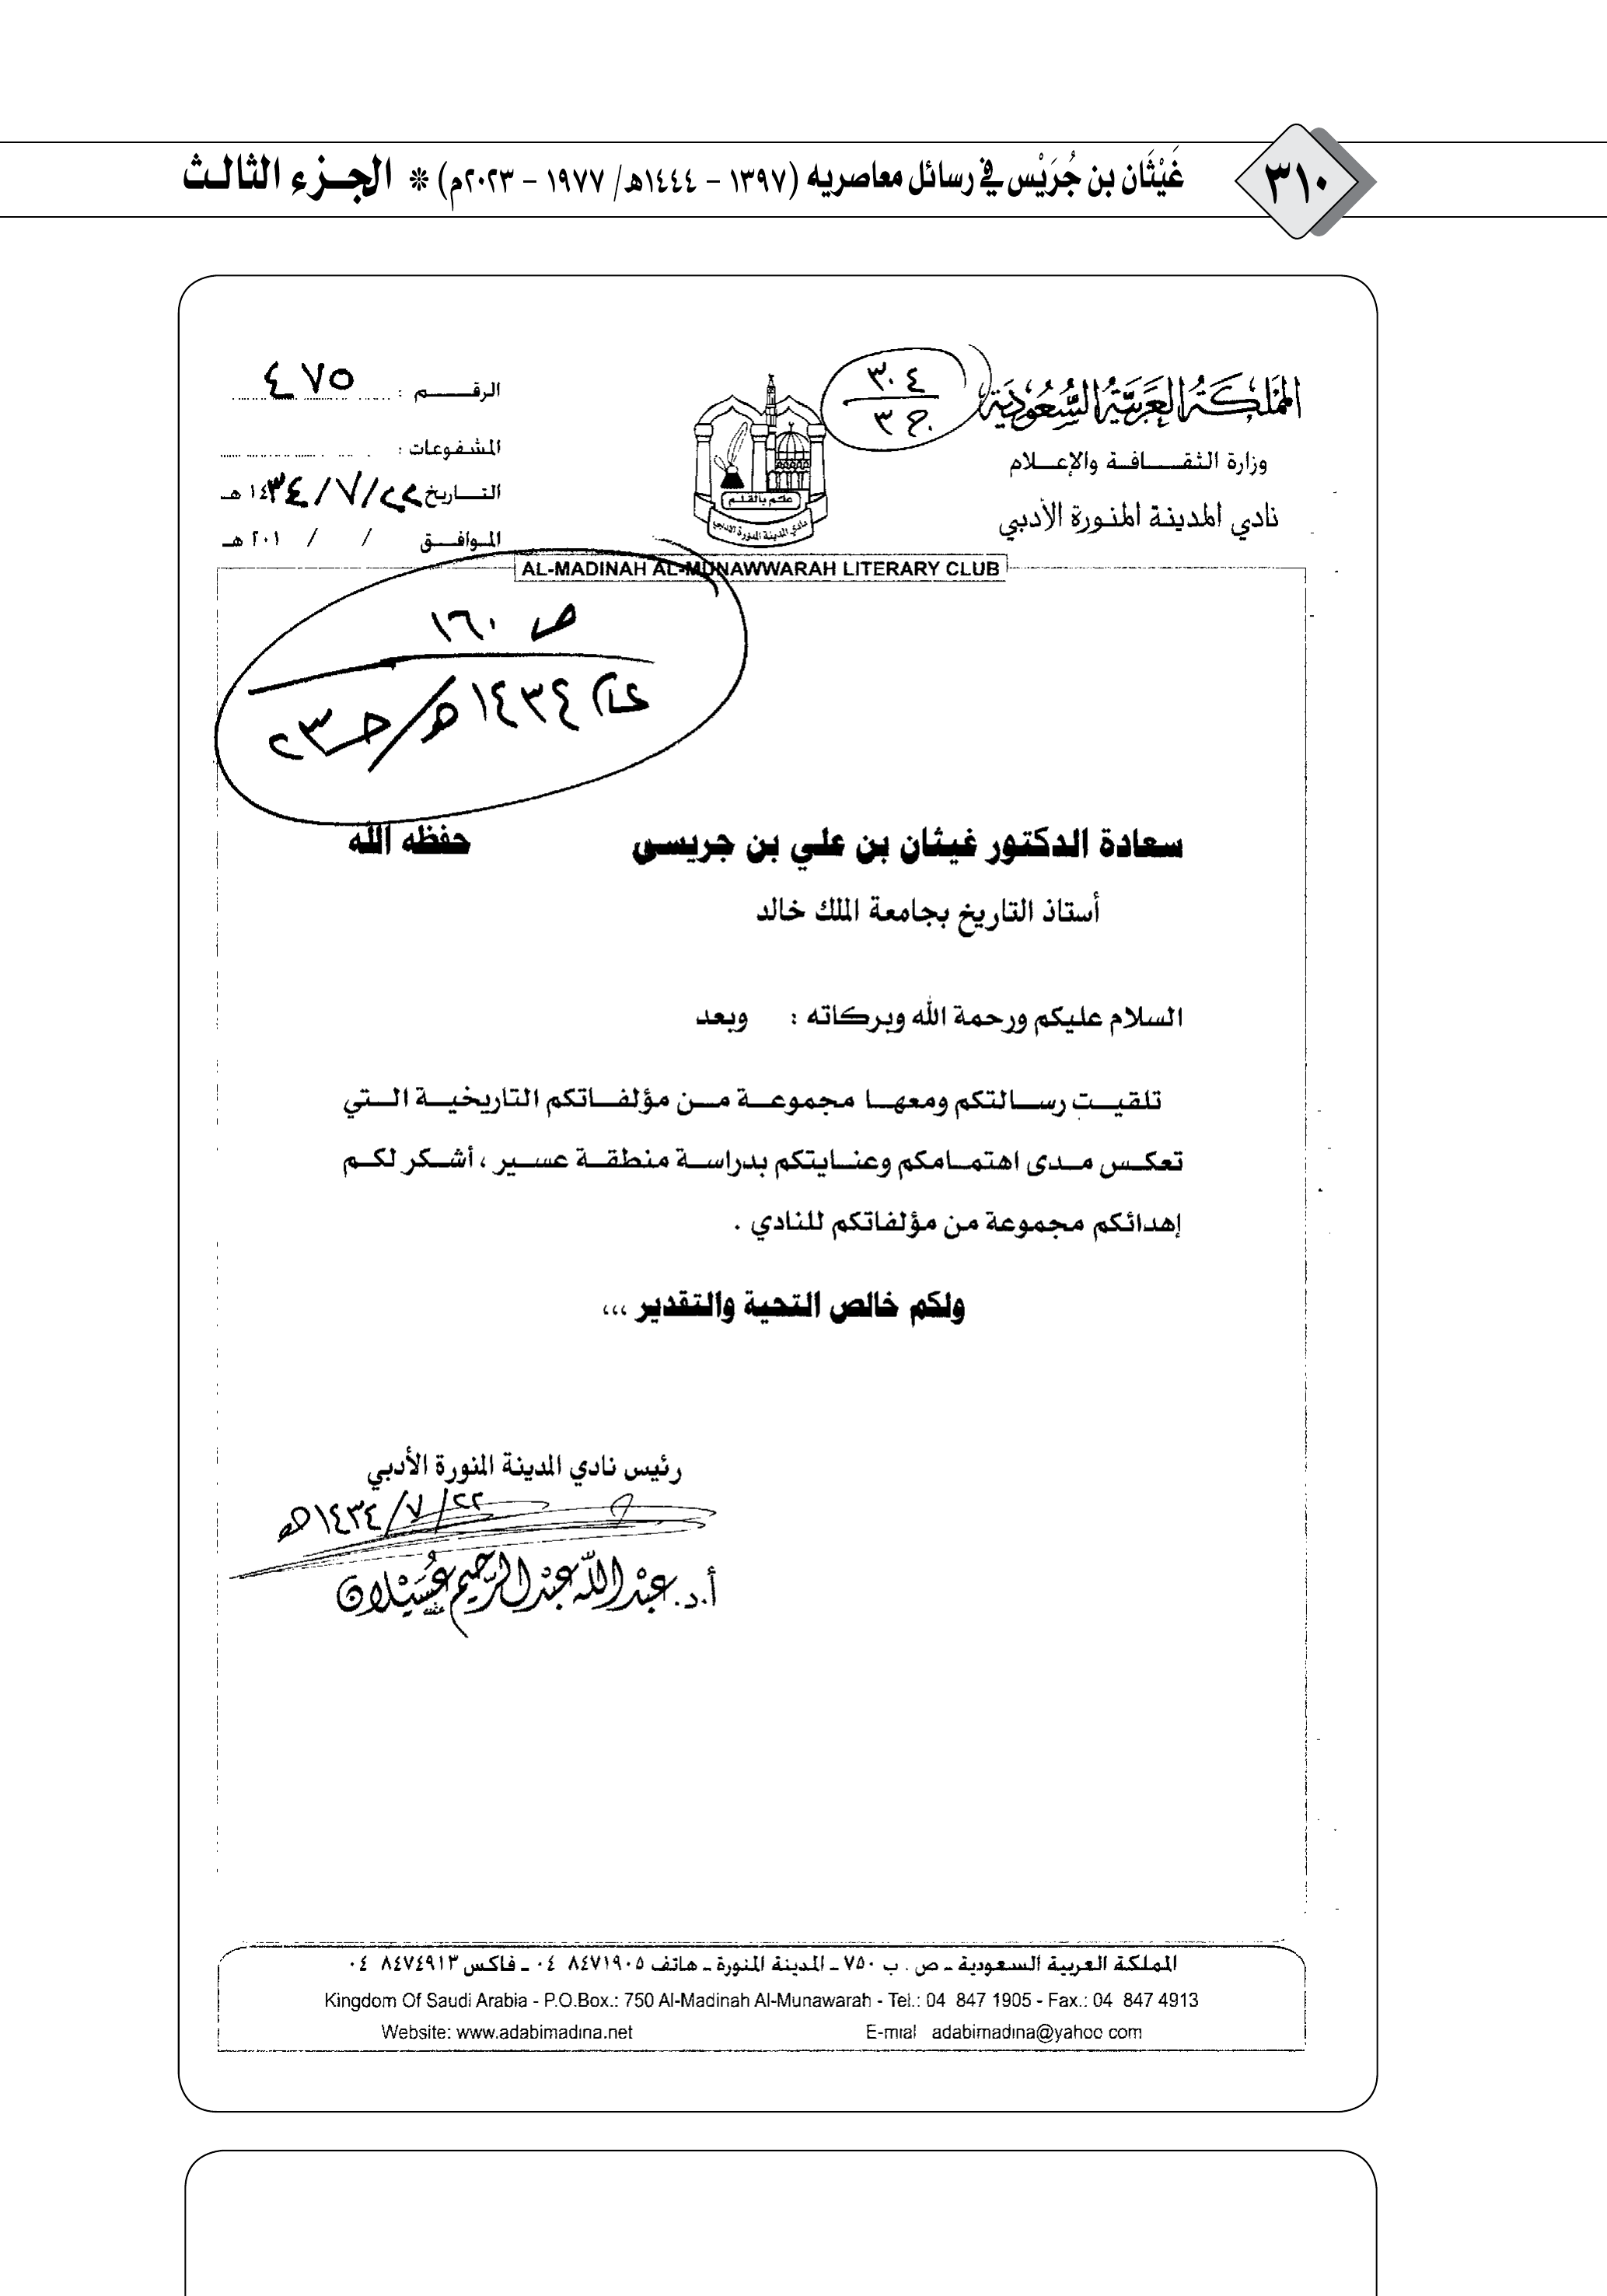 ٣١٠
غَيْثَان بن جُرَيْس في رسائل معاصريه (١٣٩٧ - ١٤٤٤هـ/ ١٩٧٧ - ٢٠٢٣م) * الجزء الثالث
المملكة العربية السعودية
وزارة الثقافة والإعلام
نادي المدينة المنورة الأدبي
٣٠٤
ج ٣
علم بالقلم
نادي المدينة المنورة الأدبي
الرقم : ٤٧٥
المشفوعات :
التاريخ ٢٢/٧/١٤٣٤ هـ
الموافق / / ٢٠١ هـ
AL-MADINAH AL-MUNAWWARAH LITERARY CLUB
ص ١٦٠
١٤٣٤هـ/ح٢٣
سعادة الدكتور غيثان بن علي بن جريسى حفظه الله
أستاذ التاريخ بجامعة الملك خالد
السلام عليكم ورحمة الله وبركاته : وبعد
تلقيت رسالتكم ومعها مجموعة من مؤلفاتكم التاريخية التي
تعكس مدى اهتمامكم وعنايتكم بدراسة منطقة عسير ، أشكر لكم
إهدائكم مجموعة من مؤلفاتكم للنادي .
ولكم خالص التحية والتقدير ...
رئيس نادي المدينة المنورة الأدبي
٢٢/٧/١٤٣٤هـ
أ.د. عبد الله عبد الرحيم عسيلان
المملكة العربية السعودية ـ ص . ب ٧٥٠ ـ المدينة المنورة ـ هاتف ٨٤٧١٩٠٥ ٠٤ ـ فاكس ٨٤٧٤٩١٣ ٠٤
Kingdom Of Saudi Arabia - P.O.Box.: 750 Al-Madinah Al-Munawarah - Tel.: 04 847 1905 - Fax.: 04 847 4913
Website: www.adabimadina.net E-mial adabimadina@yahoo com